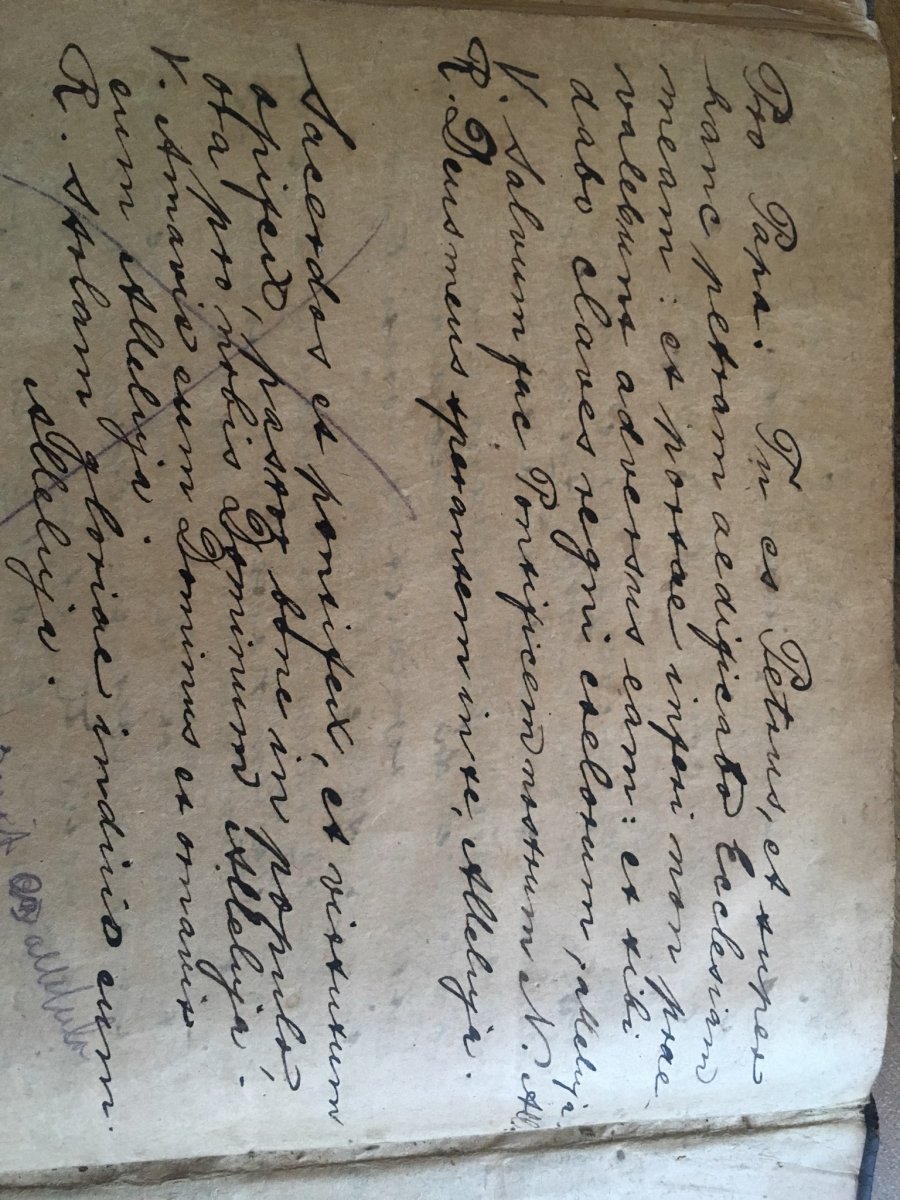 Pro Papa. Tu es Petrus, et super
hanc petram aedificabo Ecclesiam
meam: et portae inferi non prae
valebunt adversus eam: et tibi
dabo claves regni coelorum, alleluja.
V. Salvum fac Pontificem nostrum N. All.
R. Deus meus sperantem in te, Alleluja.
Sacerdos et pontifex, et virtutum
opifex, pastor bone in populo,
ora pro nobis Dominum Alleluja.
V. Amavit eum Dominus et ornavit
eum Alleluja.
R. Stolam gloriae induit eum.
Alleluja.